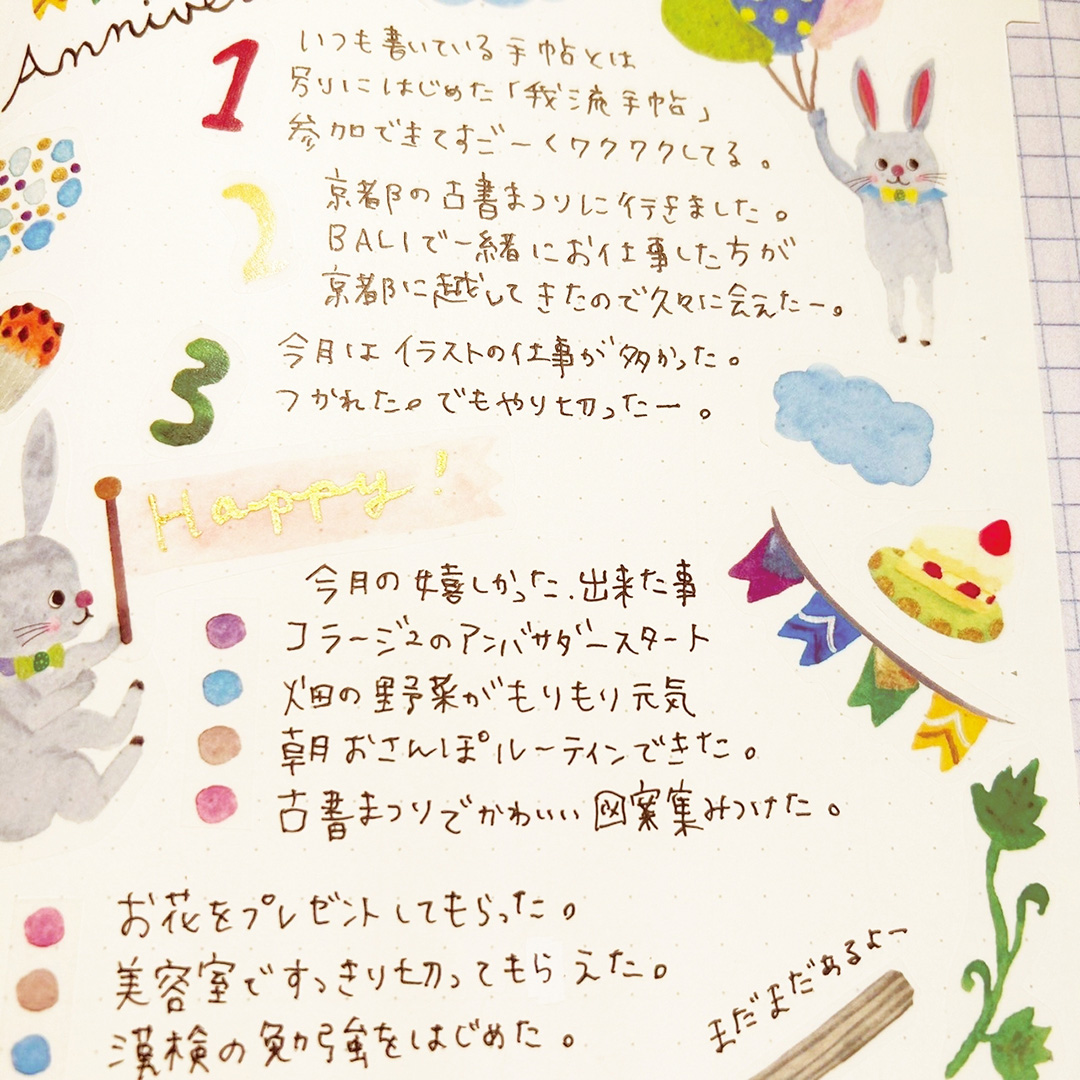 Annive
1
いつも書いている手帖とは
別りにはじめた「我流手帖」
参加できてすごーくワクワクしてる。
2
京都の古書まつりに行きました。
BALIで一緒にお仕事した方が
京都に越してきたので久々に会えたー。
3
今月はイラストの仕事が多かった。
つかれた。でもやり切ったー。
Happy!
今月の嬉しかった.出来た事
コラージュのアンバサダースタート
畑の野菜がもりもり元気
朝おさんぽルーティンできた。
古書まつりでかわいい図案集みつけた。
お花をプレゼントしてもらった。
美容室ですっきり切ってもらえた。
漢検の勉強をはじめた。
まだまだあるよー